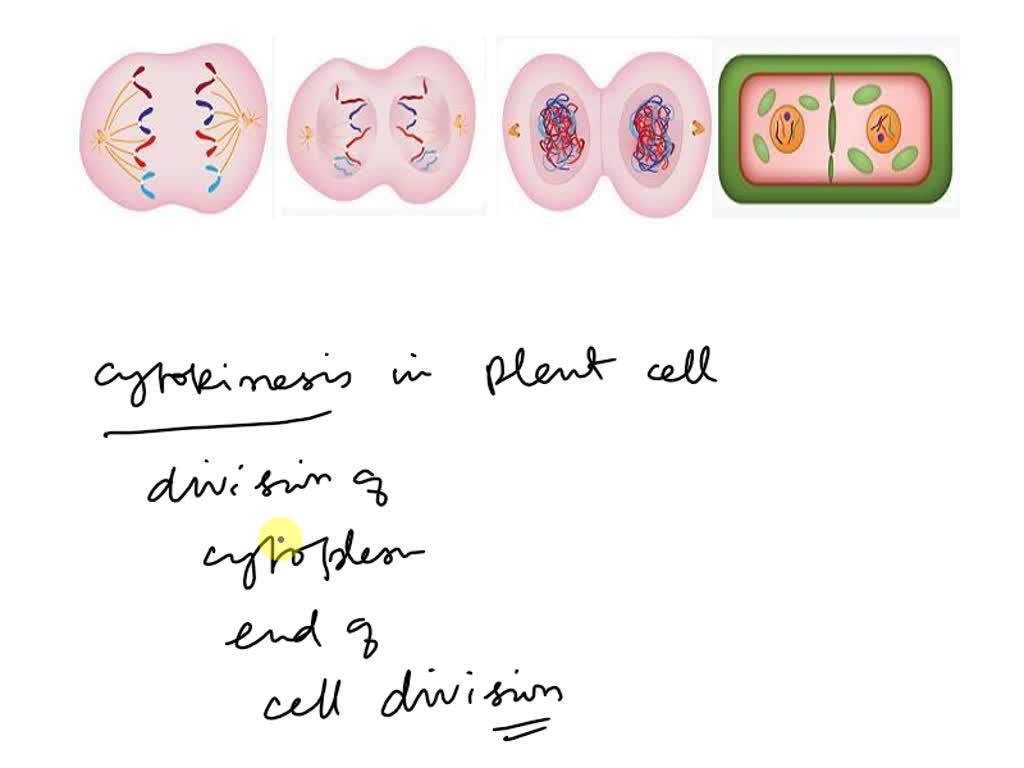 cytokinesis in plant cell
division of
cytoplasm
end of
cell division